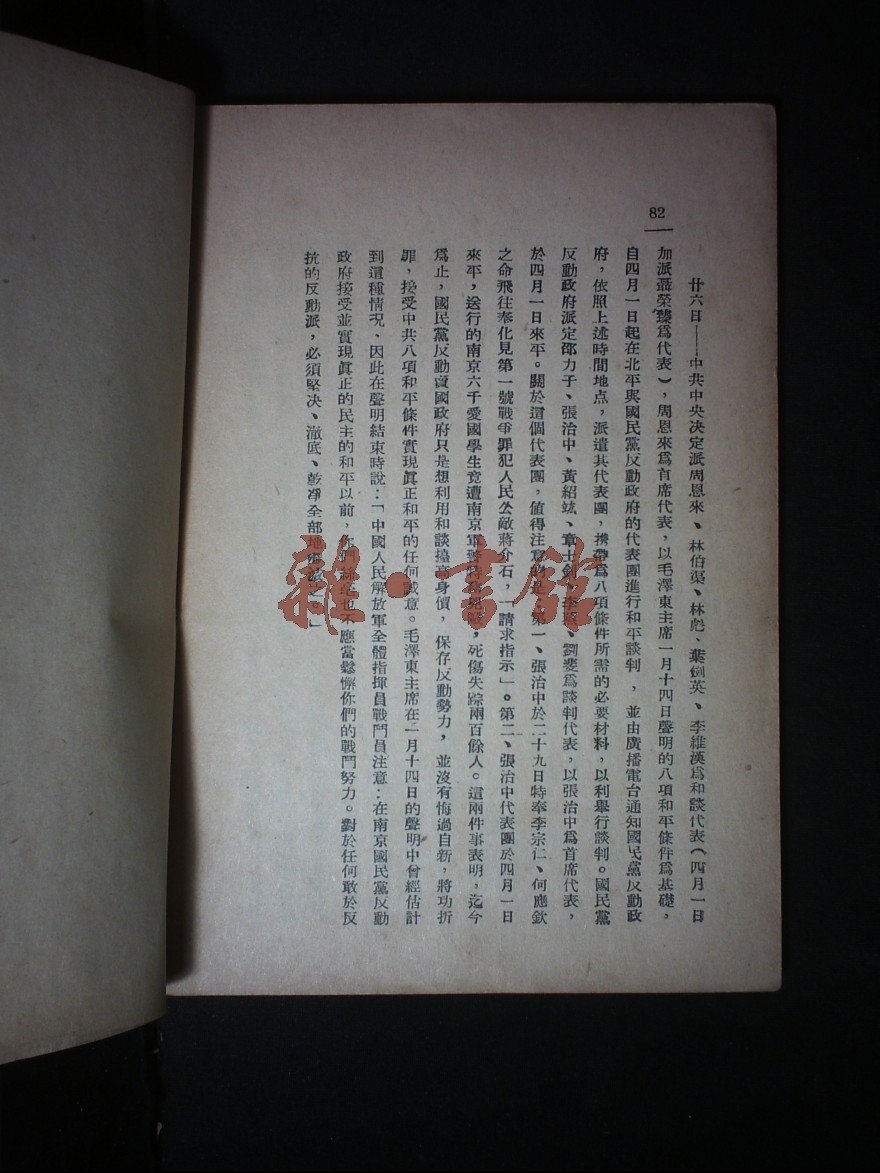 82
廿六日——中共中央决定派周恩來、林伯渠、林彪、葉劍英、李維漢爲和談代表（四月一日
加派聶榮臻爲代表），周恩來爲首席代表，以毛澤東主席一月十四日聲明的八項和平條件爲基礎，
自四月一日起在北平與國民黨反動政府的代表團進行和平談判，並由廣播電台通知國民黨反動政
府，依照上述時間地点，派遣其代表團，携帶爲八項條件所需的必要材料，以利舉行談判。國民黨
反動政府派定邵力子、張治中、黃紹竑、章士釗、李蒸、劉斐爲談判代表，以張治中爲首席代表，
於四月一日來平。關於這個代表團，值得注意的是：第一、張治中於二十九日特奉李宗仁、何應欽
之命飛往奉化見第一號戰爭罪犯人民公敵蔣介石，「請求指示」。第二、張治中代表團於四月一日
來平，送行的南京六千愛國學生竟遭南京軍警特務兇毆，死傷失踪兩百餘人。這兩件事表明，迄今
爲止，國民黨反動賣國政府只是想利用和談擡高身價，保存反動勢力，並沒有悔過自新，將功折
罪，接受中共八項和平條件實現眞正和平的任何誠意。毛澤東主席在一月十四日的聲明中曾經估計
到這種情况、因此在聲明結束時說：「中國人民解放軍全體指揮員戰鬥員注意：在南京國民黨反動
政府接受並實現眞正的民主的和平以前，你們絲毫也不應當鬆懈你們的戰鬥努力。對於任何敢於反
抗的反動派，必須堅决、澈底、乾凈全部地殲滅之。」
雜·書館